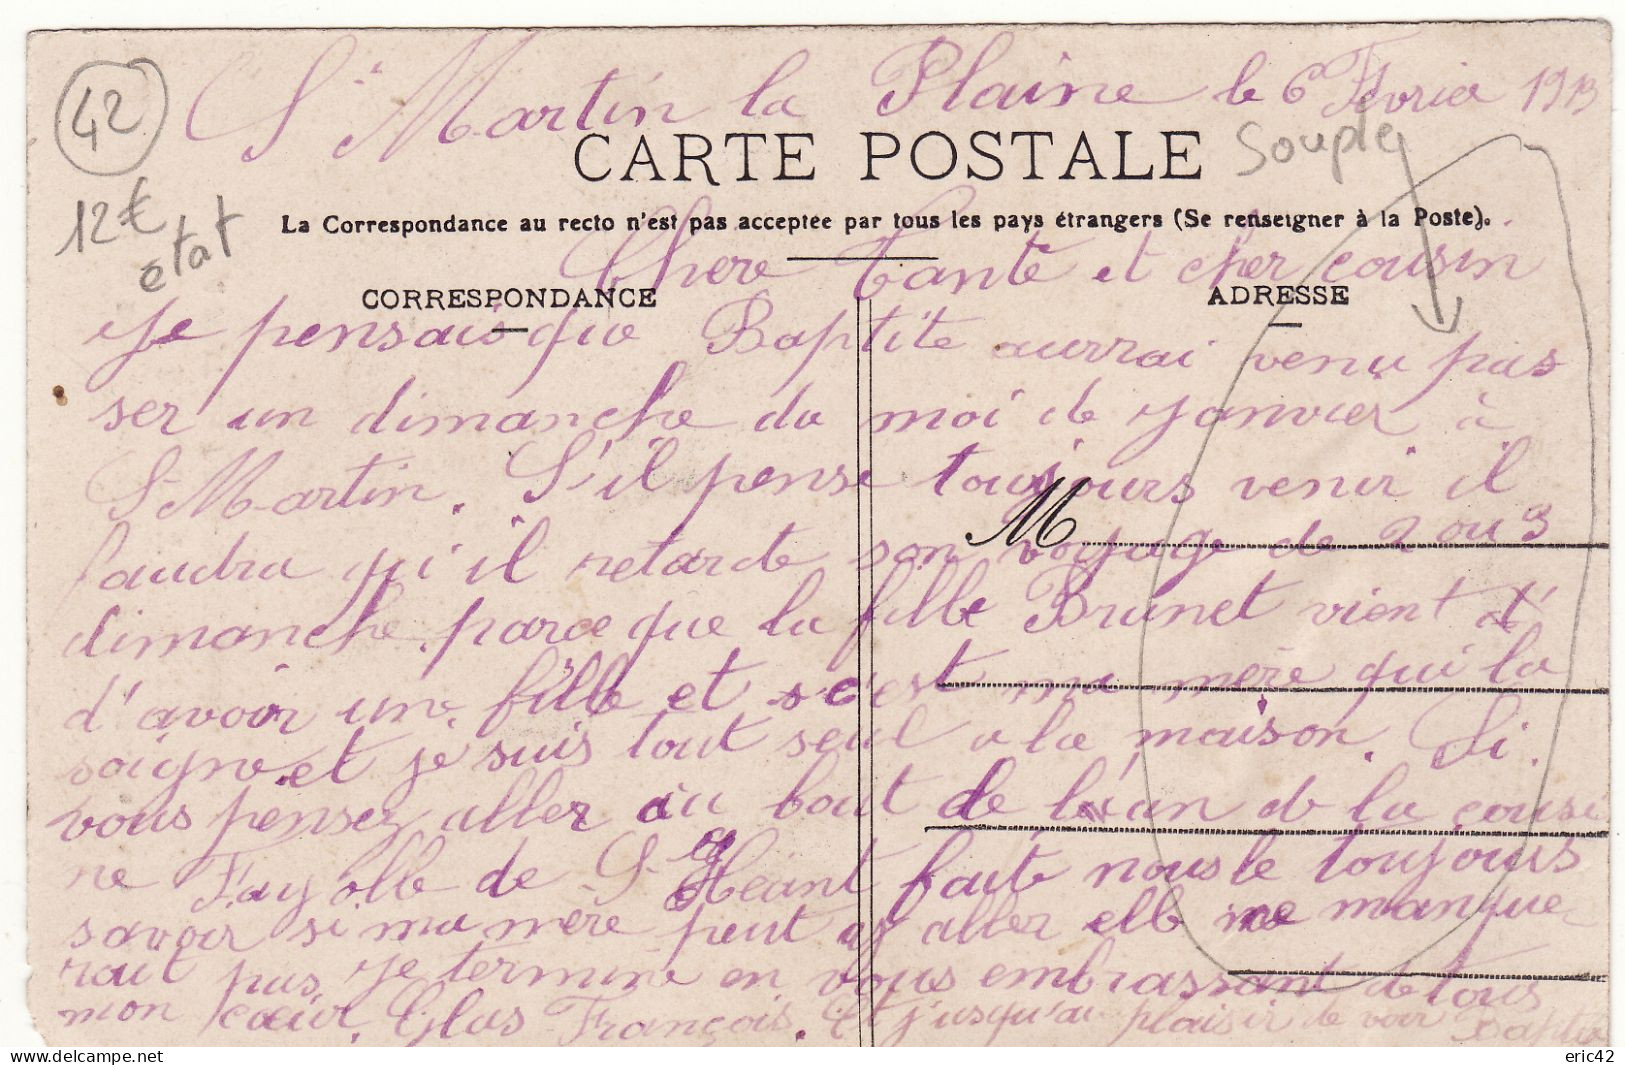 St Martin la Plaine le 6 Fevrier 1913
42
CARTE POSTALE
souple
12€
état
La Correspondance au recto n'est pas acceptée par tous les pays étrangers (Se renseigner à la Poste).
Chere Tante et cher cousin
CORRESPONDANCE
ADRESSE
Je pensais que Baptite aurrai venu pas
ser un dimanche du moi de Janvier à
St Martin. S'il pense toujours venir il
M
faudra qu'il retarde son voyage de 2 ou 3
dimanche parce que la fille Brunet vient d'
d'avoir une fille et c'est ma mère qui la
soigne et je suis tout seul a la maison. Si
vous pensez aller au bout de l'an de la cousi
ne Fayolle de St Héant faite nous le toujours
savoir si ma mère peut y aller elle ne manque
rait pas Je termine en vous embrassant de tous
mon cœur. Glas François. Et jusqu'au plaisir de voir Baptite
eric42